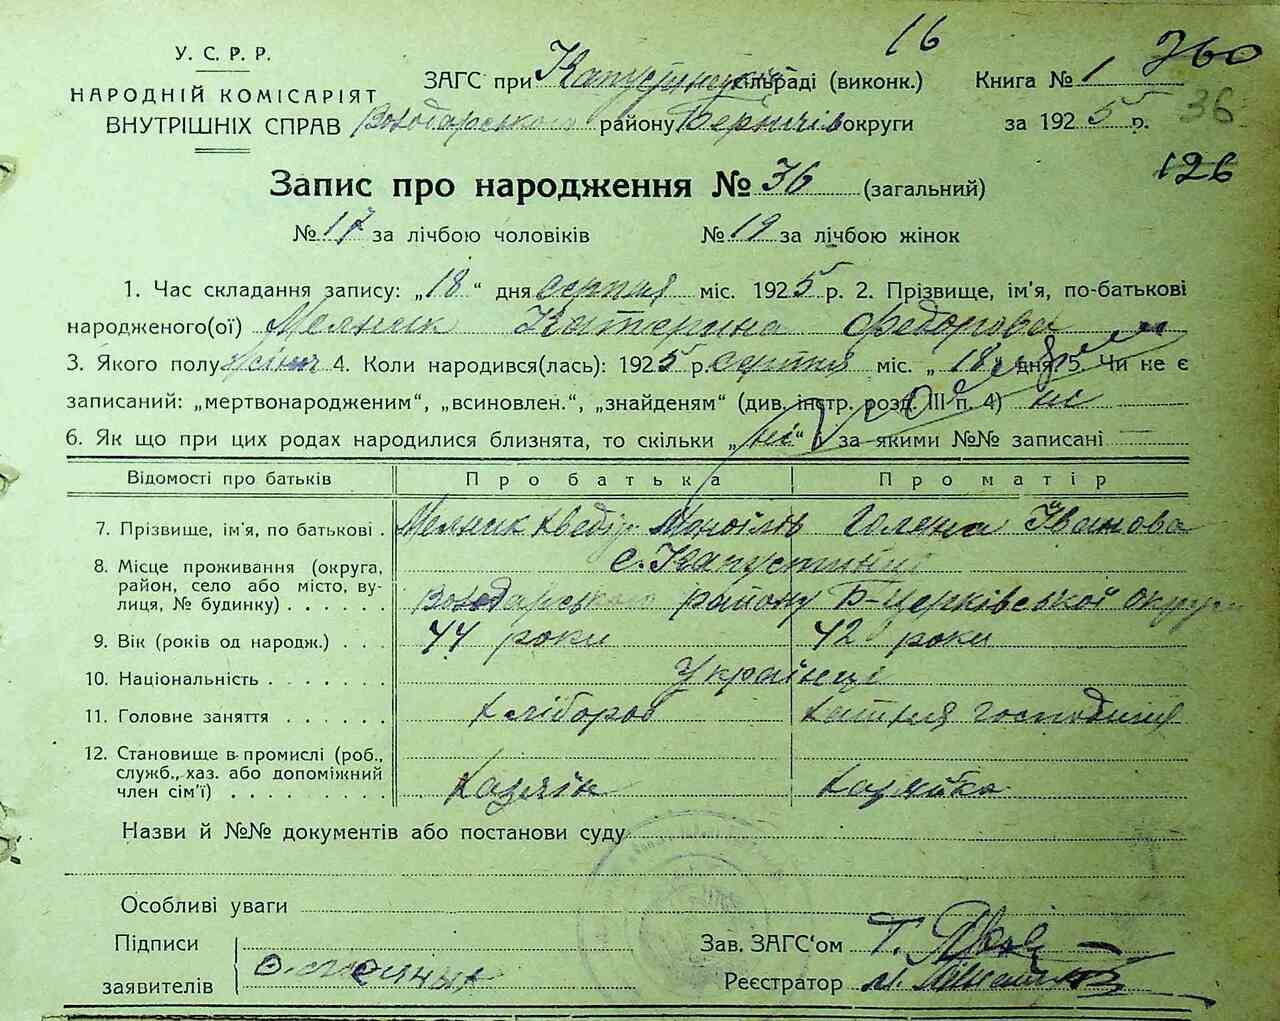 16
У. С. Р. Р.
НАРОДНІЙ КОМІСАРІЯТ
ВНУТРІШНІХ СПРАВ
ЗАГС при Капустинській сільраді (виконк.) Книга № 1 360
Володарського району Бердичів округи за 1925 р. 36
126
Запис про народження № 36 (загальний)
№ 17 за лічбою чоловіків № 19 за лічбою жінок
1. Час складання запису: „18“ дня серпня міс. 1925 р. 2. Прізвище, ім'я, по-батькові
народженого(ої) Мельник Катерина Федорова
3. Якого полу жіноч 4. Коли народився(лась): 1925 р. серпня міс. „18„ дня 5. Чи не є
записаний: „мертвонародженим“, „всиновлен.“, „знайденям“ (див. інстр. розд. III п. 4) ні
6. Як що при цих родах народилися близнята, то скільки „ні“ і за якими №№ записані
Відомості про батьків Про батька Про матір
7. Прізвище, ім'я, по батькові . Мельник Хведір Галена Іванова
8. Місце проживання (округа, с. Капустинці
район, село або місто, ву-
лиця, № будинку) . . . . . . Володарського району Б-церківської округи
9. Вік (років од народж.) . . . 44 роки 42 роки
10. Національність . . . . . . Українці
11. Головне заняття . . . . . . Хлібороб Хатня господиня
12. Становище в промислі (роб.,
служб., хаз. або допоміжний
член сім'ї) . . . . . . . . Хазяїн Хазяйка
Назви й №№ документів або постанови суду
Особливі уваги
Підписи
заявителів
Зав. ЗАГС'ом
Реєстратор